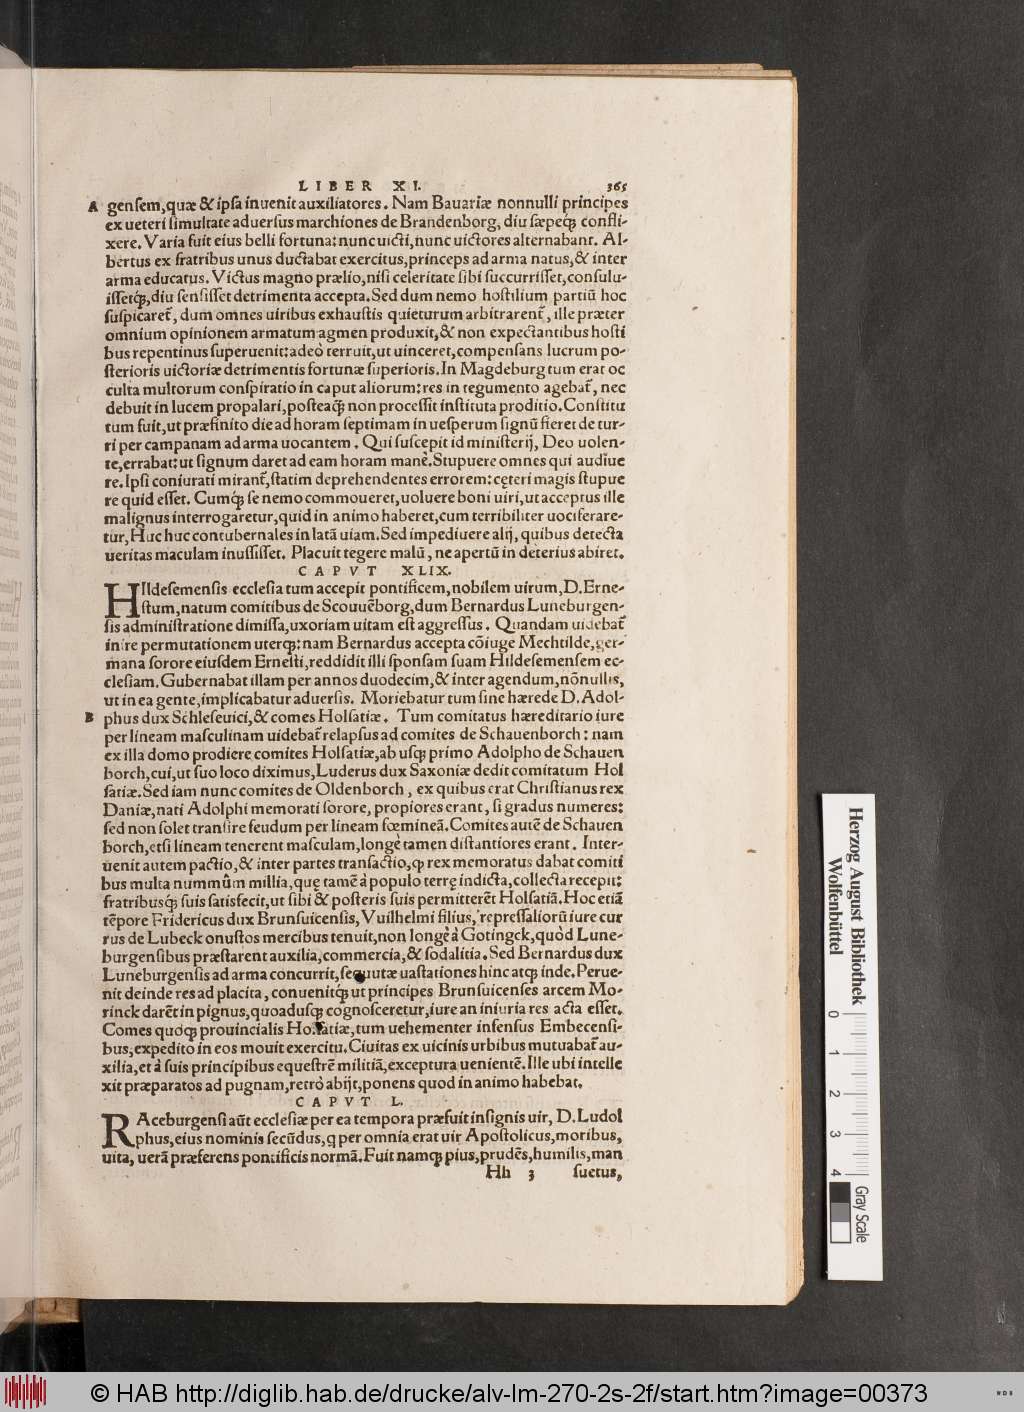 LIBER XI. 365
A gensem,quæ & ipsa inuenit auxiliatores. Nam Bauariæ nonnulli principes
ex ueteri simultate aduersus marchiones de Brandenborg, diu sæpeq́; confli-
xere. Varia fuit eius belli fortuna: nunc uicti, nunc uictores alternabant. Al-
bertus ex fratribus unus ductabat exercitus, princeps ad arma natus, & inter
arma educatus. Victus magno prælio, nisi celeritate sibi succurrisset, consulu-
issetq́;, diu sensisset detrimenta accepta. Sed dum nemo hostilium partiũ hoc
suspicaret̃, dum omnes uiribus exhaustis quieturum arbitrarent̃, ille præter
omnium opinionem armatum agmen produxit, & non expectantibus hosti
bus repentinus superuenit: adeò terruit, ut uinceret, compensans lucrum po-
sterioris uictoriæ detrimentis fortunæ superioris. In Magdeburg tum erat oc
culta multorum conspiratio in caput aliorum: res in tegumento agebat̃, nec
debuit in lucem propalari, posteaq̃; non processit instituta proditio. Constitu
tum fuit, ut præfinito die ad horam septimam in uesperum signũ fieret de tur-
ri per campanam ad arma uocantem. Qui suscepit id ministerij, Deo uolen-
te, errabat: ut signum daret ad eam horam manè. Stupuere omnes qui audiue
re. Ipsi coniurati mirant̃, statim deprehendentes errorem: cęteri magis stupue
re quid esset. Cumq́; se nemo commoueret, uoluere boni uiri, ut acceptus ille
malignus interrogaretur, quid in animo haberet, cum terribiliter uociferare-
tur, Huc huc contubernales in latã uiam. Sed impediuere alij, quibus detecta
ueritas maculam inussisset. Placuit tegere malũ, ne apertũ in deterius abiret.
CAPVT XLIX.
HIldesemensis ecclesia tum accepit pontificem, nobilem uirum, D. Erne-
stum, natum comitibus de Scouuẽborg, dum Bernardus Luneburgen-
sis administratione dimissa, uxoriam uitam est aggressus. Quandam uidebat̃
inire permutationem uterq;: nam Bernardus accepta cõiuge Mechtilde, ger-
mana sorore eiusdem Ernesti, reddidit illi sponsam suam Hildesemensem ec-
clesiam. Gubernabat illam per annos duodecim, & inter agendum, nõnullis,
ut in ea gente, implicabatur aduersis. Moriebatur tum sine hærede D. Adol-
B phus dux Schlesuici, & comes Holsatiæ. Tum comitatus hæreditario iure
per lineam masculinam uidebat̃ relapsus ad comites de Schauenborch: nam
ex illa domo prodiere comites Holsatiæ, ab usq; primo Adolpho de Schauen
borch, cui, ut suo loco diximus, Luderus dux Saxoniæ dedit comitatum Hol
satiæ. Sed iam nunc comites de Oldenborch, ex quibus erat Christianus rex
Daniæ, nati Adolphi memorati sorore, propiores erant, si gradus numeres:
sed non solet transire feudum per lineam fœmineã. Comites autẽ de Schauen
borch, etsi lineam tenerent masculam, longè tamen distantiores erant. Inter-
uenit autem pactio, & inter partes transactio, ꝙ rex memoratus dabat comiti
bus multa nummûm millia, quę tamẽ à populo terrę indicta, collecta recepit:
fratribusq́; suis satisfecit, ut sibi & posteris suis permitterẽt Holsatiã. Hoc etiã
tẽpore Fridericus dux Brunsuicensis, Vuilhelmi filius, repressaliorũ iure cur
rus de Lubeck onustos mercibus tenuit, non longè à Gotingck, quòd Lune-
burgensibus præstarent auxilia, commercia, & sodalitia. Sed Bernardus dux
Luneburgensis ad arma concurrit, sequutæ uastationes hinc atq; inde. Perue-
nit deinde res ad placita, conuenitq́; ut principes Brunsuicenses arcem Mo-
rinck darẽt in pignus, quoadusq; cognosceretur, iure an iniuria res acta esset.
Comes quoq; prouincialis Holsatiæ, tum uehementer infensus Embecensi-
bus, expedito in eos mouit exercitu. Ciuitas ex uicinis urbibus mutuabat̃ au-
xilia, et à suis principibus equestrẽ militiã, exceptura uenientẽ. Ille ubi intelle
xit præparatos ad pugnam, retrò abijt, ponens quod in animo habebat.
CAPVT L.
RAceburgensi aũt ecclesiæ per ea tempora præfuit insignis uir, D. Ludol
phus, eius nominis secũdus, q per omnia erat uir Apostolicus, moribus,
uita, uerã præferens pontificis normã. Fuit namq; pius, prudẽs, humilis, man
Hh 3 suetus,
Herzog August Bibliothek
Wolfenbüttel
0 1 2 3 4 Gray Scale
© HAB http://diglib.hab.de/drucke/alv-lm-270-2s-2f/start.htm?image=00373
WDB